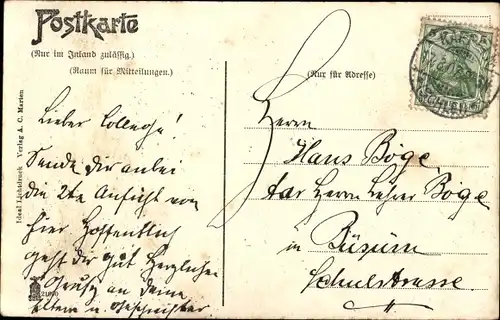 Postkarte
(Nur im Inland zulässig.)
(Raum für Mitteilungen.)
(Nur für Adresse)
Lieber College!
Sende dir anbei
die 2te Ansicht von
hier. Hoffentlich
geht dir gut Herzlichen
Gruß an deine
Eltern u. Geschwister
Herrn
Hans Böge
Herrn Lehrer Böge
in Büsum
Schulstrasse.
Ideal Lichtdruck Verlag A. C. Marten